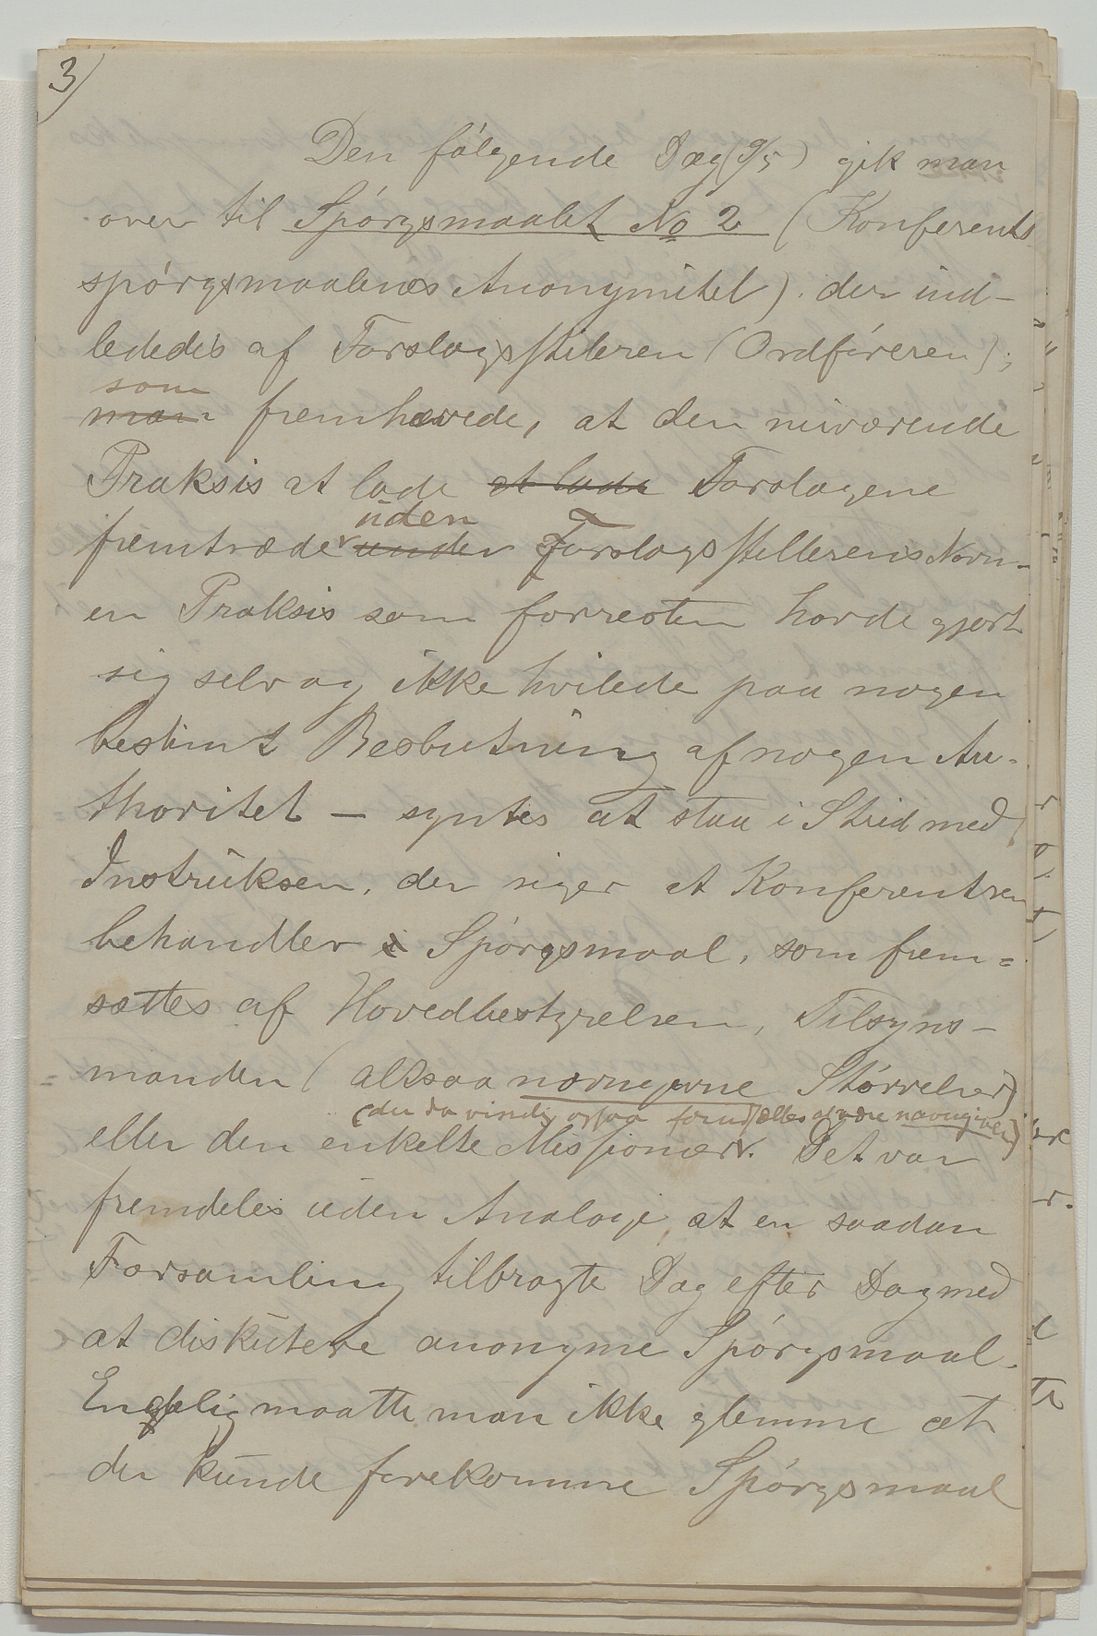 3)
Den følgende Dag (9/5) gik man
over til Spørgsmaalet No 2 (Konferents
spørgsmaalenes Anonymitet). der ind-
lededes af Forslagsstilleren (Ordføreren);
som
man fremhævede, at den nuværende
Praksis at lade at lade Forslagene
uden
fremtræde under Forslagsstillerens Navn -
en Praksis som forresten havde gjort
sig selv og ikke hvilede paa nogen
bestimt Beslutning af nogen Au-
thoritet — syntes at staa i Strid med
Instruksen, der siger at Konferentsen
behandler Spørgsmaal, som frem=
sættes af Hovedbestyrelsen, Tilsyns-
manden (altsaa navngivne Størrelser)
(der da vindt ogsaa forudsættes at være navngiven)
eller den enkelte Missionær. Det var
fremdeles uden Analogi, at en saadan
Forsamling tilbragte Dag efter Dag med
at diskutere anonyme Spørgsmaal.
Endelig maatte man ikke glemme at
der kunde forekomme Spørgsmaal